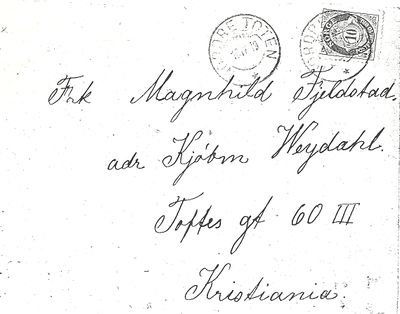 ØDRE TOTEN
10
Frk Magnhild Fjeldstad.
adr Kjøbm Weydahl.
Toftes gt 60 III
Kristiania.